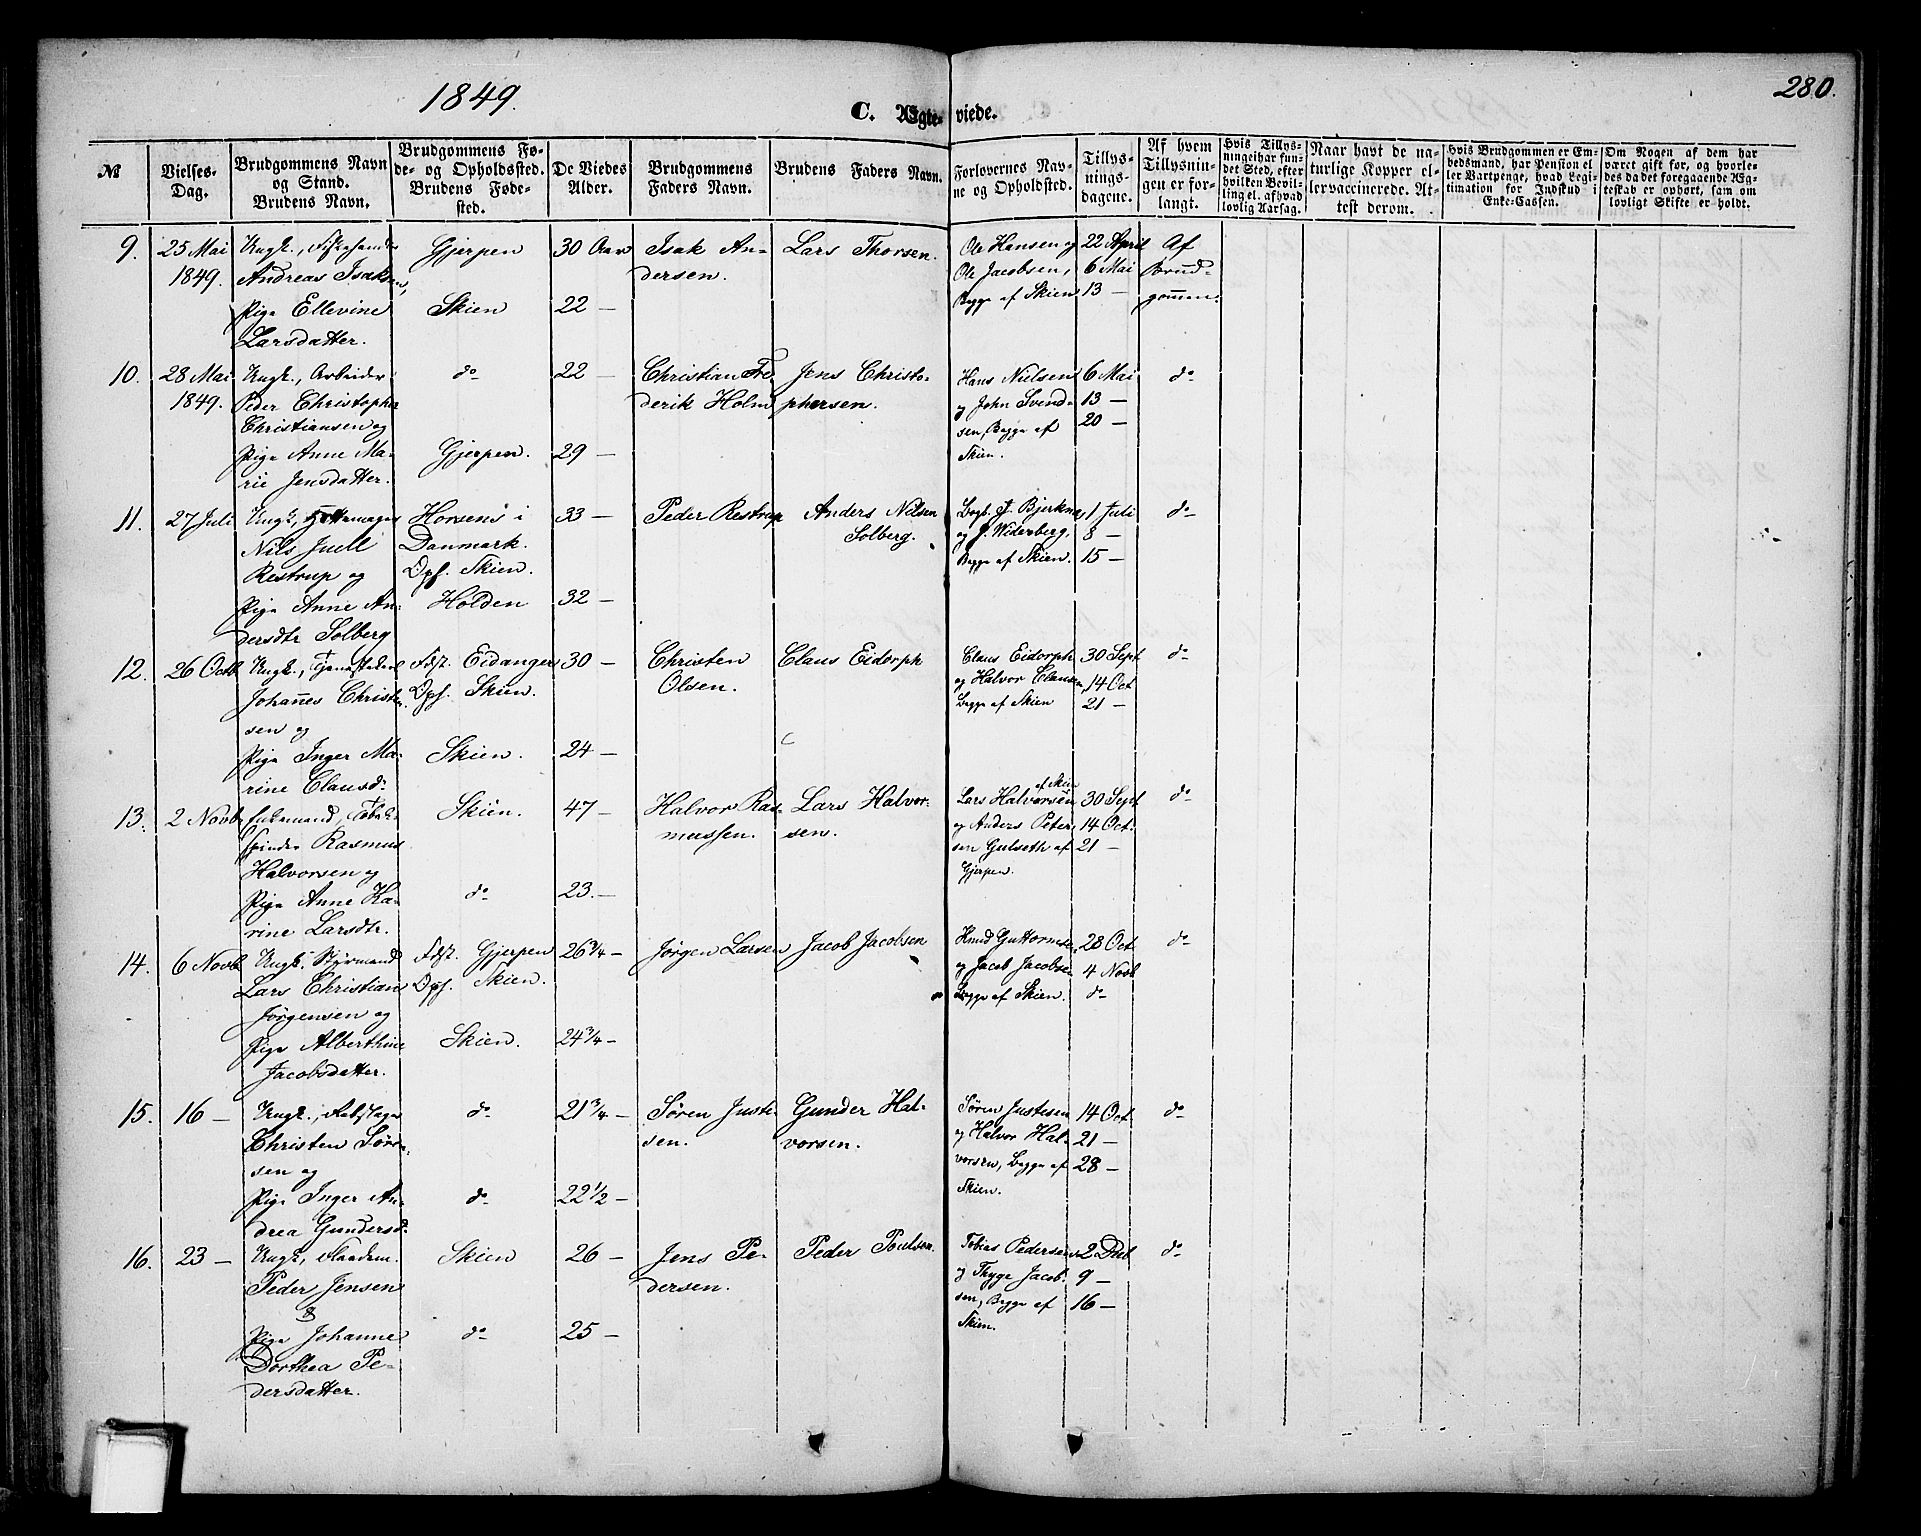 1849.
C. Ægteviede.
280.
№
Vielses-
Dag.
Brudgommens Navn
og Stand.
Brudens Navn.
Brudgommens Fø-
de- og Opholdssted.
Brudens Føde-
sted.
De Viedes
Alder.
Brudgommens
Faders Navn.
Brudens Faders Navn.
Forlovernes Nav-
ne og Opholdsted.
Tillys-
nings-
dagene.
Af hvem
Tillysnin-
gen er for-
langt.
Hvis Tillys-
ningei har fun-
det Sted, efter
hvilken Bevil-
ling el. afhvad
lovlig Aarsag.
Naar havt de na-
turlige Kopper el-
lervaccinerede. At-
test derom.
Hvis Brudgommen er Em-
bedsmand, har Pension el
ler Vartpenge, hvad Legi-
timation for Indskud i
Enke-Cassen.
Om Nogen af dem har
været gift før, og hvorle-
des da det foregaaende Æg-
teskab er ophørt, sam om
lovligt Skifte er holdt.
9.
25 Mai
1849.
Ungk.,
Andreas Isaksen,
Pige Ellevine
Larsdatter.
Gjerpen
Skien
30 Aar
22 —
Isak An-
dersen.
Lars Thorsen.
Ole Hansen og
Ole Jacobsen,
Begge af Skien
22 April
6 Mai
13 —
Af
Brud-
gommen.
10.
28 Mai
1849.
Ungk., Arbeider
Peder Christopher
Christiansen og
Pige Anne Ma-
rie Jensdatter.
do
Gjerpen.
22 —
29 —
Christian Fre-
derik Holm
Jens Christo-
phersen.
Hans Nielsen
og John Svend-
sen, Begge af
Skien.
6 Mai
13 —
20 —
do
11.
27 Juli
Ungk, Hattemager
Nils Juell
Restrup og
Pige Anne An-
dersdtr Solberg
Horsens i
Danmark.
Ops. Skien.
Holden
33 —
32 —
Peder Restrup
Anders Nilsen
Solberg.
Bogb. J. Bjerknes
og J. Widerberg,
Begge af Skien.
1 Juli
8 —
15 —
do
12.
26 Octb
Ungk.,
Johannes Christen-
sen og
Pige Inger Ma-
rine Clausd.
Fdst. Eidanger
Ops. Skien.
Skien.
30 —
24 —
Christen
Olsen.
Claus Eidorph
Claus Eidorph
og Halvor Clausen,
Begge af Skien
30 Sept
14 Oct
21 —
do
13.
2 Novb
Enkemand, Tobak-
spinder Rasmus
Halvorsen og
Pige Anne Ka-
rine Larsdtr.
Skien.
do
47 —
23. —
Halvor Ras-
mussen.
Lars Halvor-
sen.
af Skien
Lars Halvorsen
og Anders Peter-
sen Gulseth af
Gjerpen.
30 Sept
14 Oct.
21 —
do
14.
6 Novb
Ungk. Styrmand
Lars Christian
Jørgensen og
Pige Alberthine
Jacobsdatter.
Fdst. Gjerpen
Ops. Skien.
Skien.
26 3/4 —
24 3/4 —
Jørgen Larsen
Jacob Jacobsen
Knud Guttormsen
og Jacob Jacobsen
Begge af Skien.
28 Oct.
4 Novb
do
do
15.
16 —
Ungk.,
Christen Søren-
sen og
Pige Inger An-
drea Gundersd.
do
do
21 3/4 —
22 1/2 —
Søren Juste-
sen.
Gunder Hal-
vorsen.
Søren Justesen
og Halvor Hal-
vorsen, Begge af
Skien.
14 Oct.
21 —
28 —
do
16.
23 —
Ungk,
Peder Jensen
&
Pige Johanne
Dorthea Pe-
dersdatter.
Skien
do
26 —
25 —
Jens Pe-
dersen.
Peder Poulsen.
Tobias Pedersen
og Thyge Jacob-
sen, Begge af
Skien.
2 Dcb
9 —
16 —
do